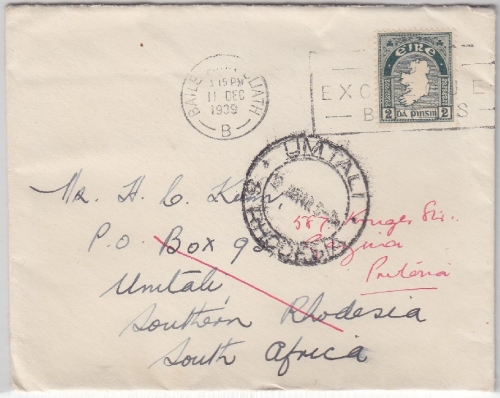 BAILE ÁTHA CLIATH
3 15 PM
11 DEC
1939
B
EIRE
2 DÁ PINGIN 2
UMTALI
S. RHODESIA
Mr. H. C.
P.O. Box
Umtali
Southern Rhodesia
South Africa
587
Pretoria